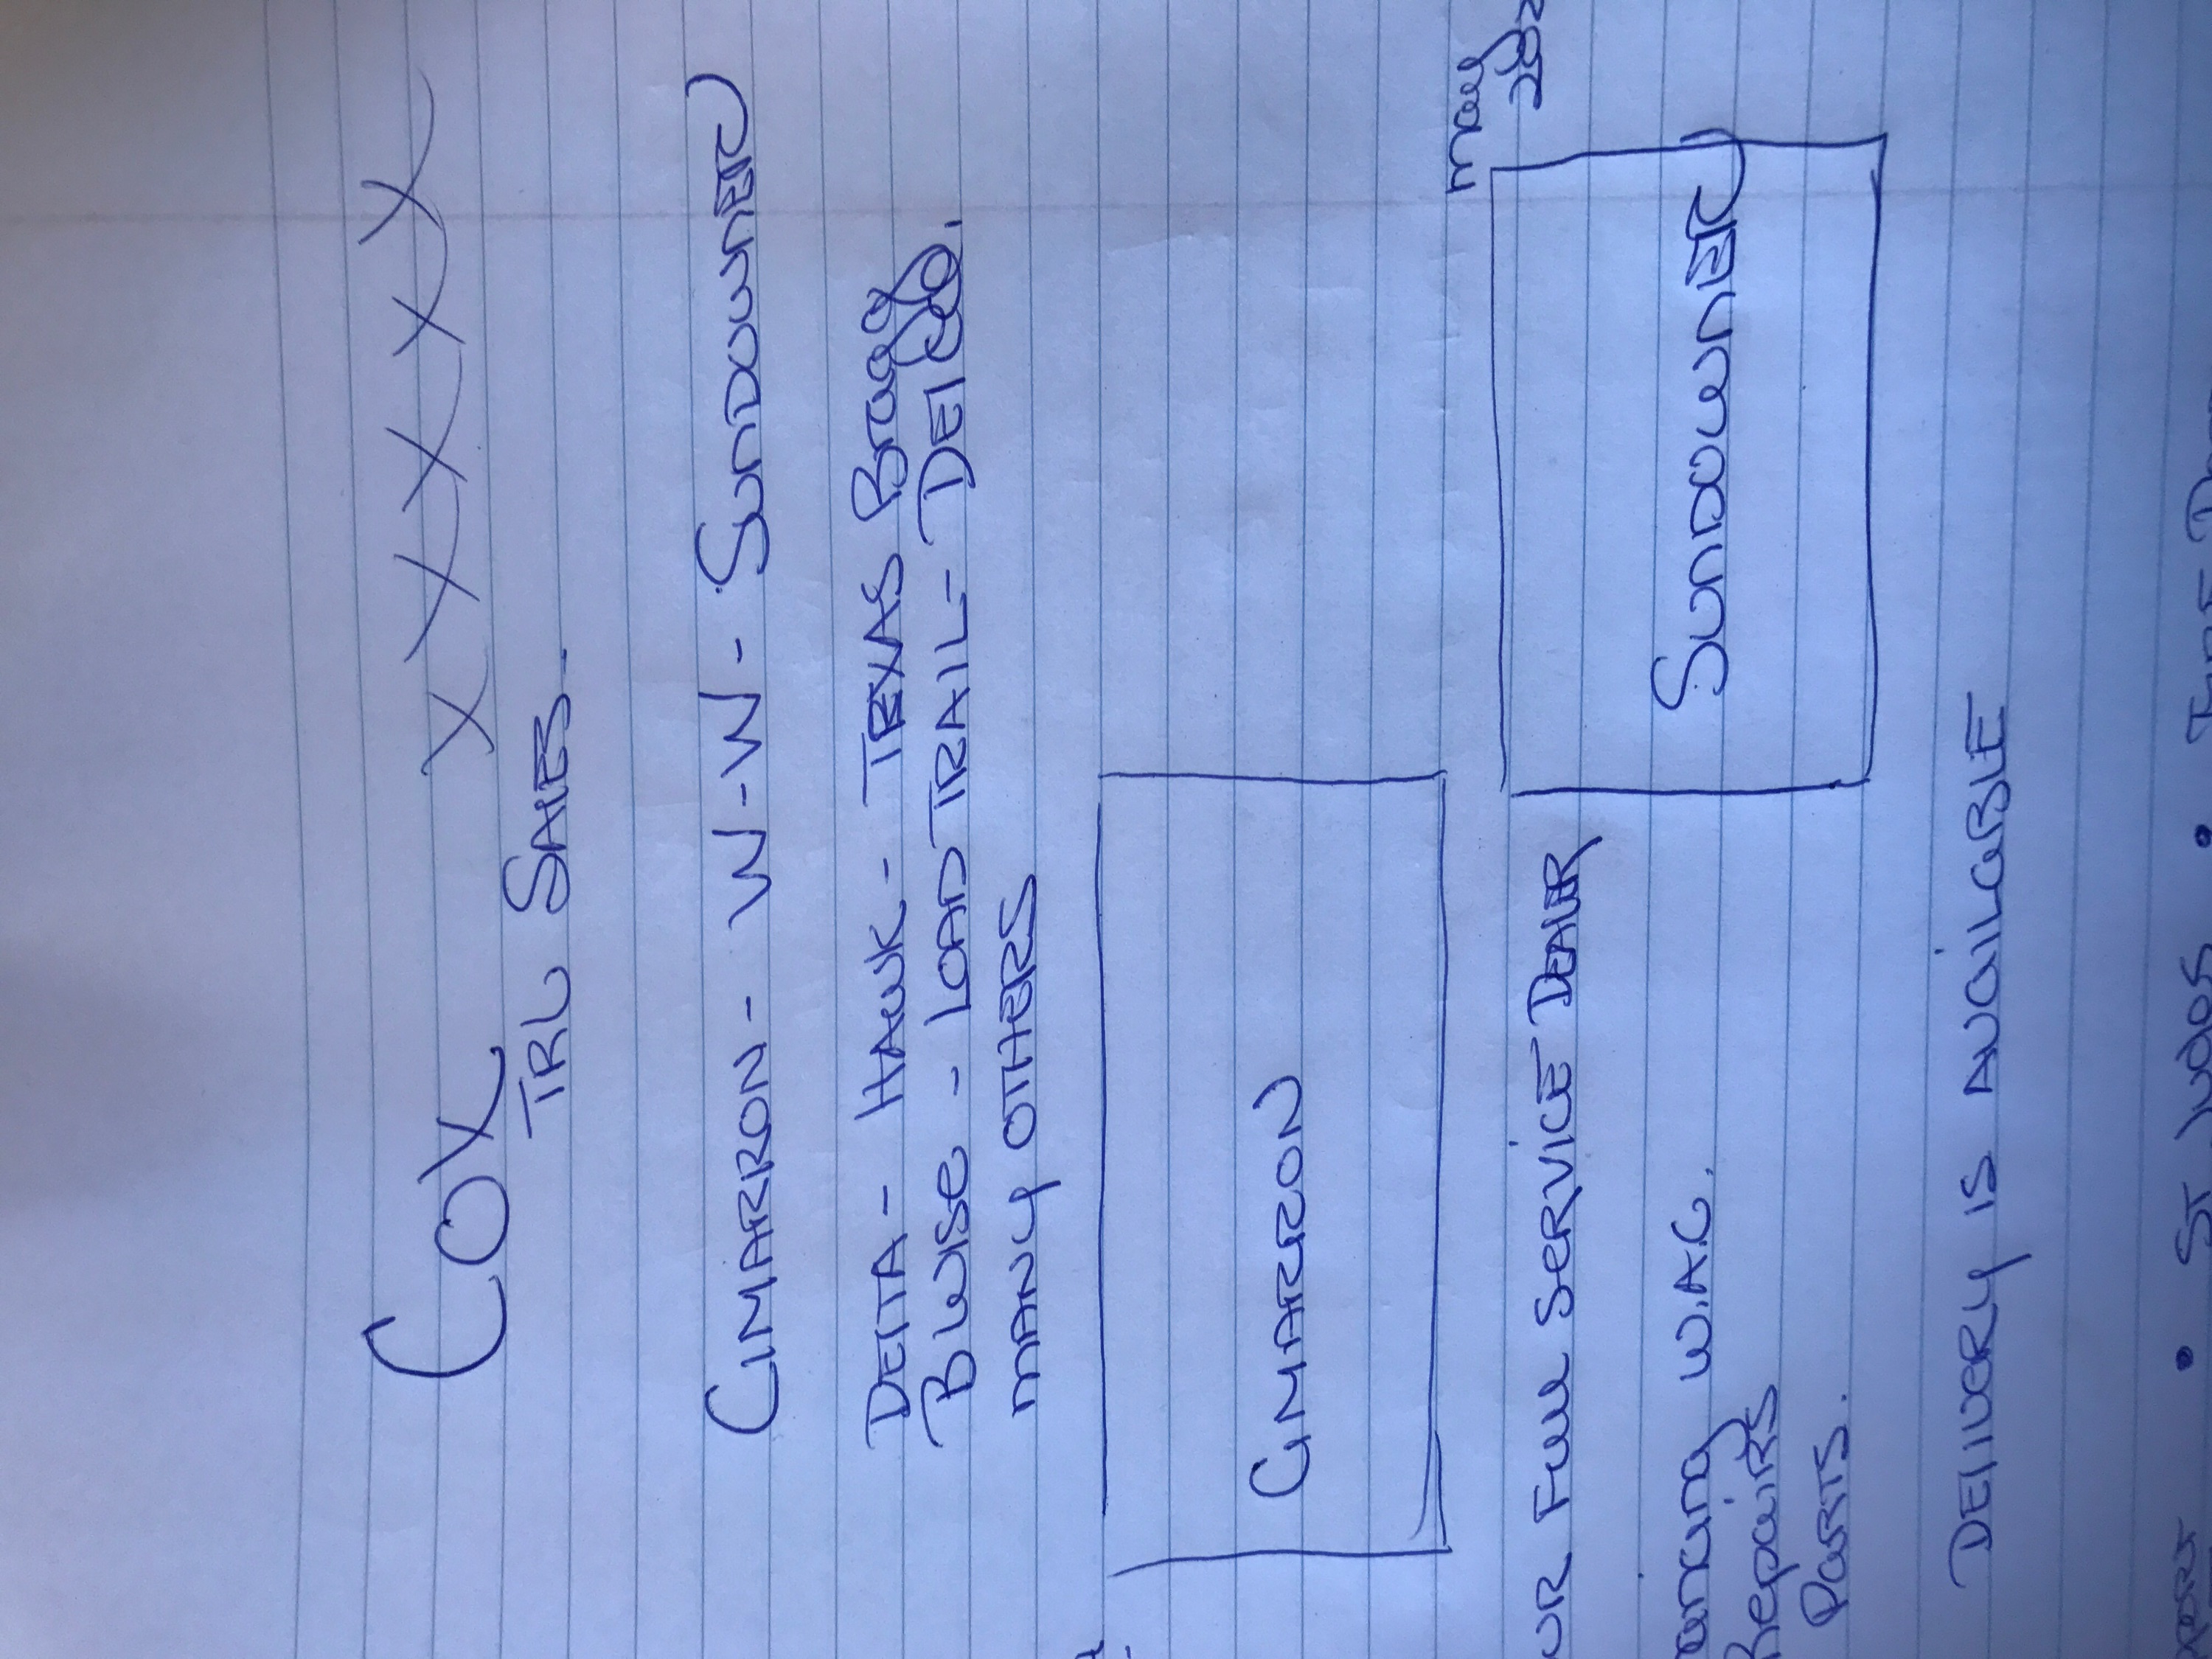 COX X X X X X
TRL SALES-
CIMARRON - W-W - SUNDOWNER
DELTA - HAWK - TEXAS Bragg
BWISE - LOAD TRAIL - DELCO.
MANY OTHERS
CIMARRON
May
SUNDOWNER
UR FULL SERVICE DEALER
ancing W.A.C.
Repairs
Parts.
DELIVERY IS AVAILABLE